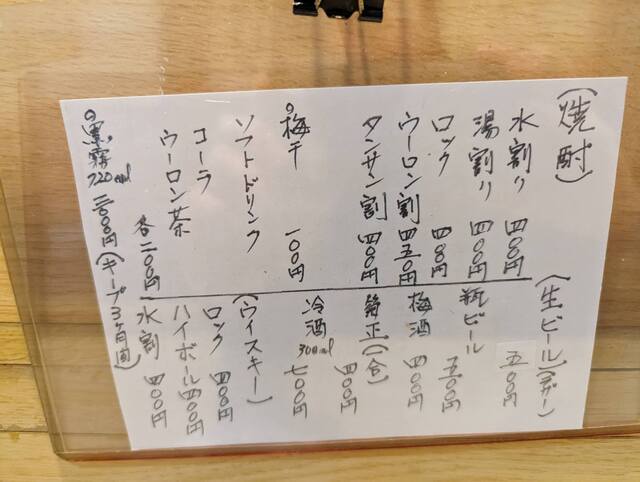 (焼酎)
水割り 四〇〇円
湯割り 四〇〇円
ロック 四〇〇円
ウーロン割 四五〇円
タンサン割 四〇〇円
梅干 一〇〇円
ソフトドリンク
コーラ
ウーロン茶 各二〇〇円
(生ビール)
五〇〇円
瓶ビール 五〇〇円
梅酒 四〇〇円
菊正(一合) 四〇〇円
冷酒 300ml 七〇〇円
(ウイスキー)
ロック 四〇〇円
ハイボール 四〇〇円
水割 四〇〇円
黒霧 720ml 二〇〇〇円 (キープ3ヶ月間)